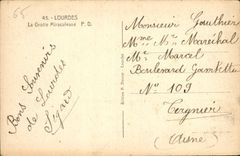 65
45. - LOURDES
La Grotte Miraculeuse P. D.
Bons Souvenirs
de Lourdes
Monsieur Gauthier
Mme Vve Maréchal
Mr Marcel
Boulevard Gambetta
No 103
Tergnier
(Aisne)